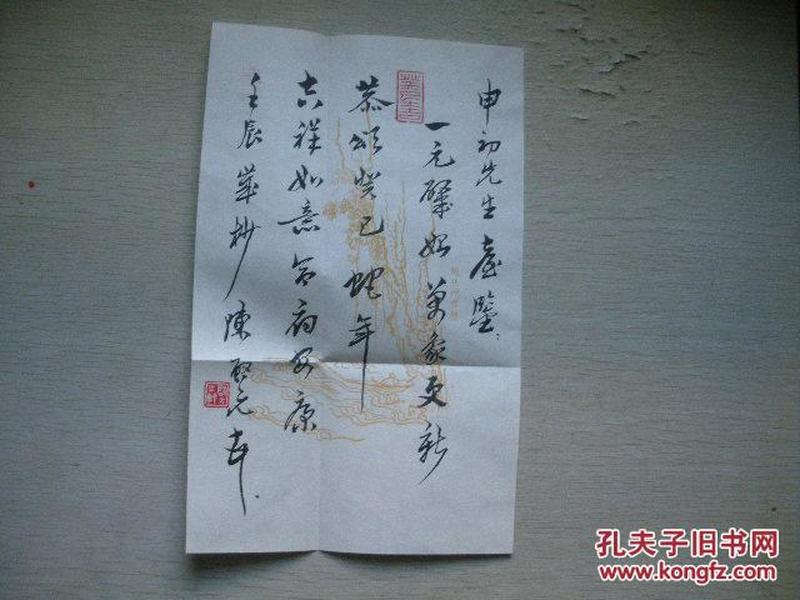 申初先生臺鑒：
一元肇始萬象更新
恭頌癸巳蛇年
吉祥如意合府安康
壬辰歲杪陳啟元卉
孔夫子旧书网
www.kongfz.com